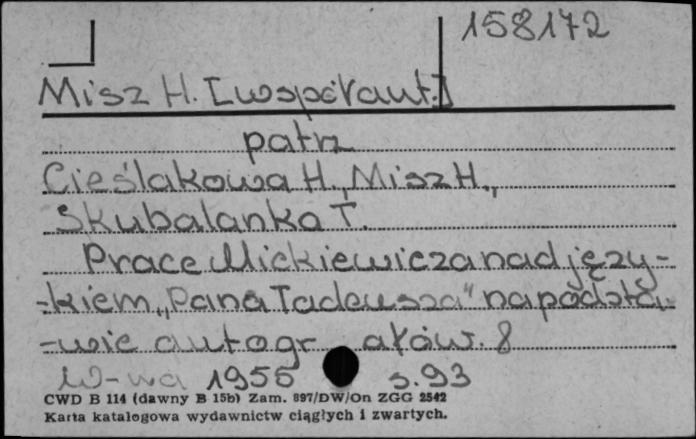 158172
Misz H. [współaut.]
patrz
Cieślakowa H., Misz H.,
Skubalanka T.
Prace Mickiewicza nad języ-
-kiem „Pana Tadeusza" na podsta-
-wie autogr afów. 8
W-wa 1955 s. 93
CWD B 114 (dawny B 15b) Zam. 897/DW/On ZGG 2542
Karta katalogowa wydawnictw ciągłych i zwartych.